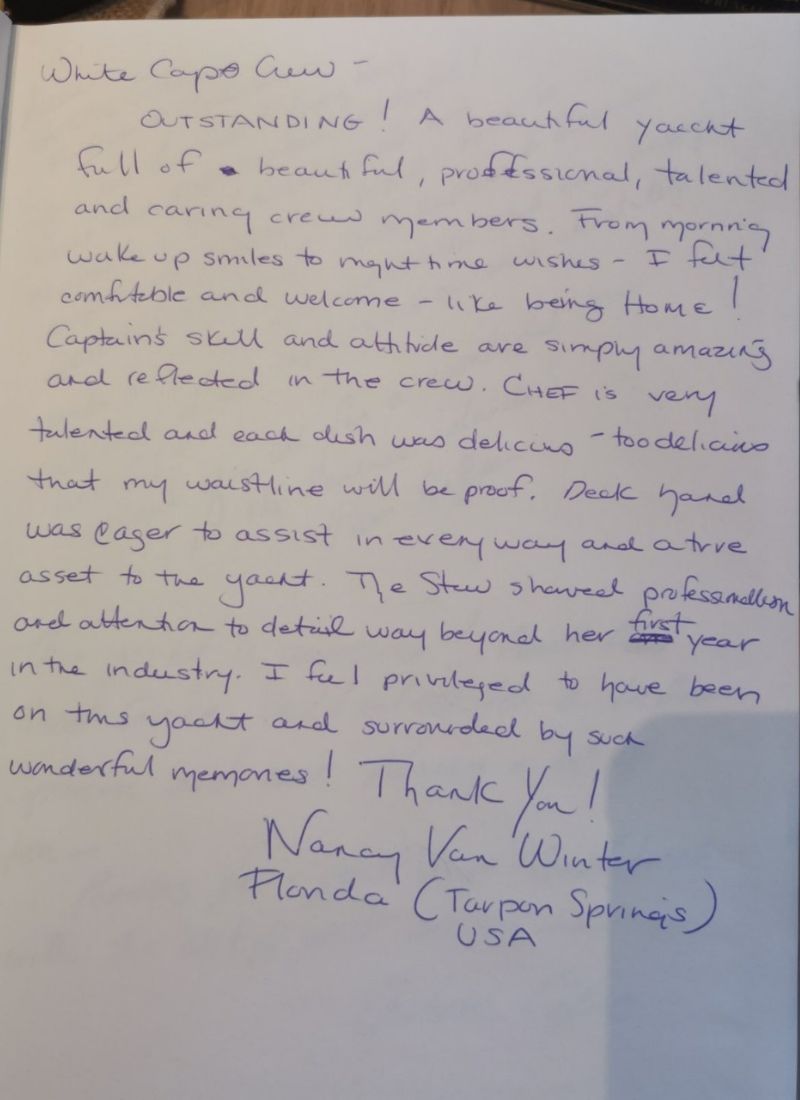 White Capo Crew -
OUTSTANDING! A beautiful yaccht
full of beautiful, professional, talented
and caring crew members. From morning
wake up smiles to night time wishes - I felt
comfortable and welcome - like being Home!
Captain's skill and attitude are simply amazing
and reflected in the crew. CHEF is very
talented and each dish was delicious - too delicious
that my waistline will be proof. Deck hand
was eager to assist in every way and a true
asset to the yacht. The Stew showed professionalism
and attention to detail way beyond her first year
in the industry. I feel privileged to have been
on this yacht and surrounded by such
wonderful memories! Thank You!
Nancy Van Winter
Florida (Tarpon Springs)
USA